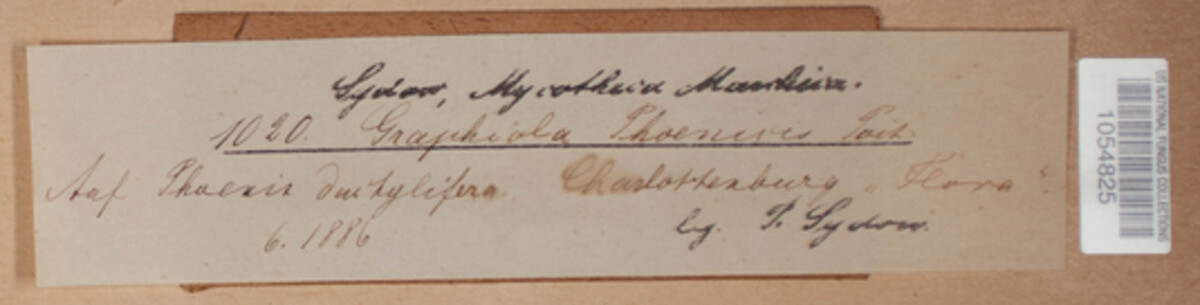 Sydow, Mycotheca Marchica.
1020. Graphiola Phoenicis Poit.
Auf Phoenix dactylifera Charlottenburg „Flora“.
6. 1886
lg. P. Sydow.
US NATIONAL FUNGUS COLLECTIONS
1054825